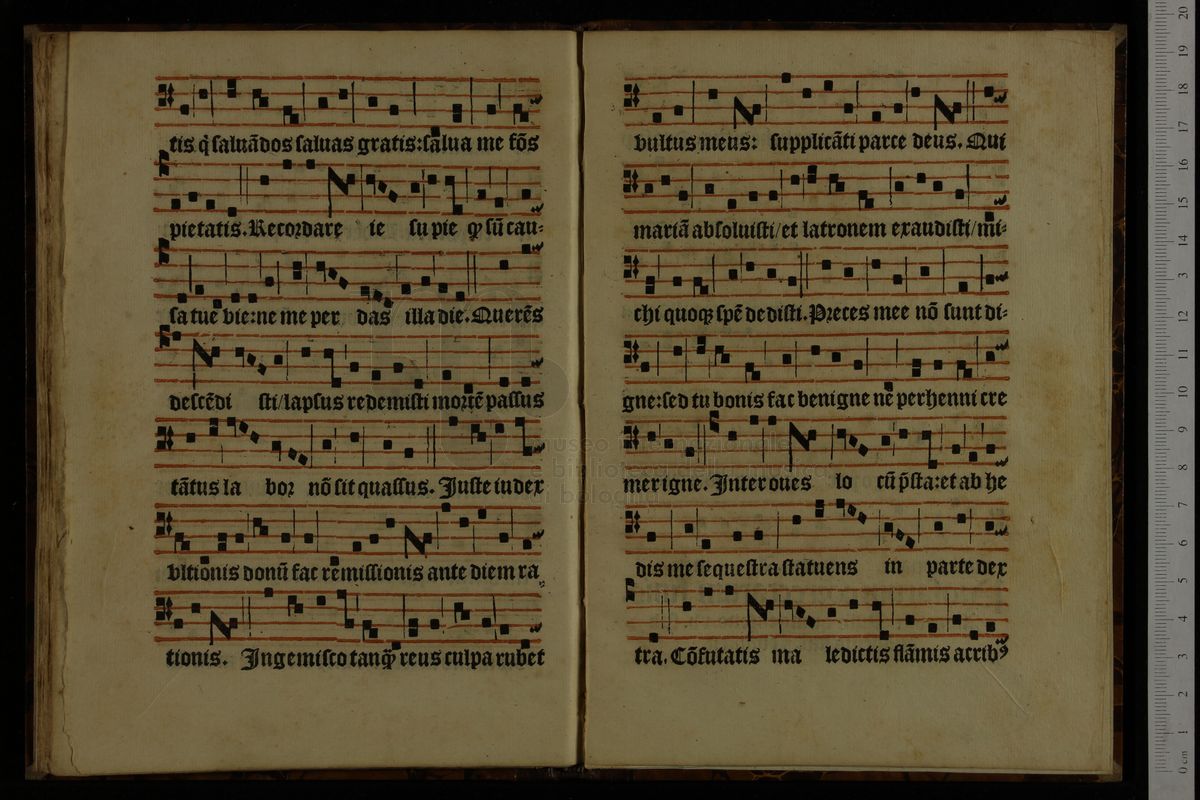 tis q̇ saluādos saluas gratis: salua me fōs
pietatis. Recordare ie su pie ꝙ sū cau-
sa tue vie: ne me per das illa die. Querēs
descēdi sti/lapsus redemisti mortē passus
tātus la bor nō sit quassus. Juste iudex
vltionis donū fac remissionis ante diem ra
tionis. Ingemisco tanꝙ̄ reus culpa rubet
vultus meus: supplicāti parce deus. Qui
mariā absoluisti/et latronem exaudisti/mi-
chi quoqꝫ spē dedisti. Preces mee nō sunt di-
gne: sed tu bonis fac benigne nē perhenni cre
mer igne. Inter oues lo cū p̄sta: et ab he
dis me sequestra statuens in parte dex
tra. Cōfutatis ma ledictis flāmis acribꝰ
museo internazionale
e biblioteca della musica
di bologna
0 cm 1 2 3 4 5 6 7 8 9 10 11 12 13 14 15 16 17 18 19 20